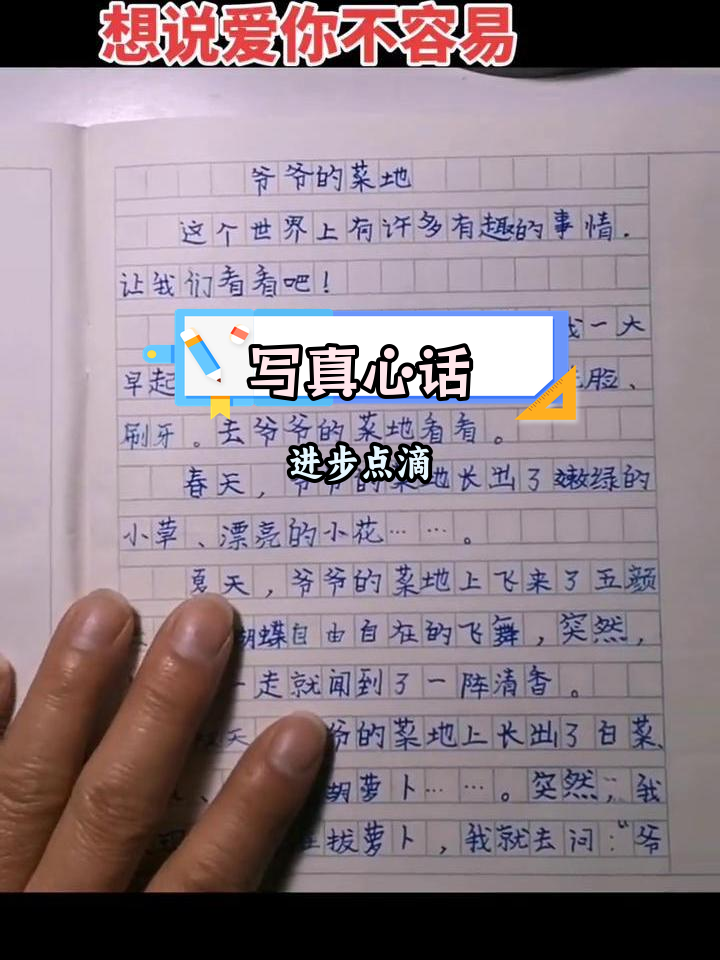 想说爱你不容易
爷爷的菜地
这个世界上有许多有趣的事情.
让我们看看吧!
我一大
写真心话
早起 洗脸、
刷牙。去爷爷的菜地看看。
进步点滴
春天，爷爷的菜地长出了嫩绿的
小草、漂亮的小花……。
夏天，爷爷的菜地上飞来了五颜
蝴蝶自由自在的飞舞，突然，
一走就闻到了一阵清香。
天 爷的菜地上长出了白菜、
、 胡萝卜……。突然，我
拔萝卜，我就去问："爷